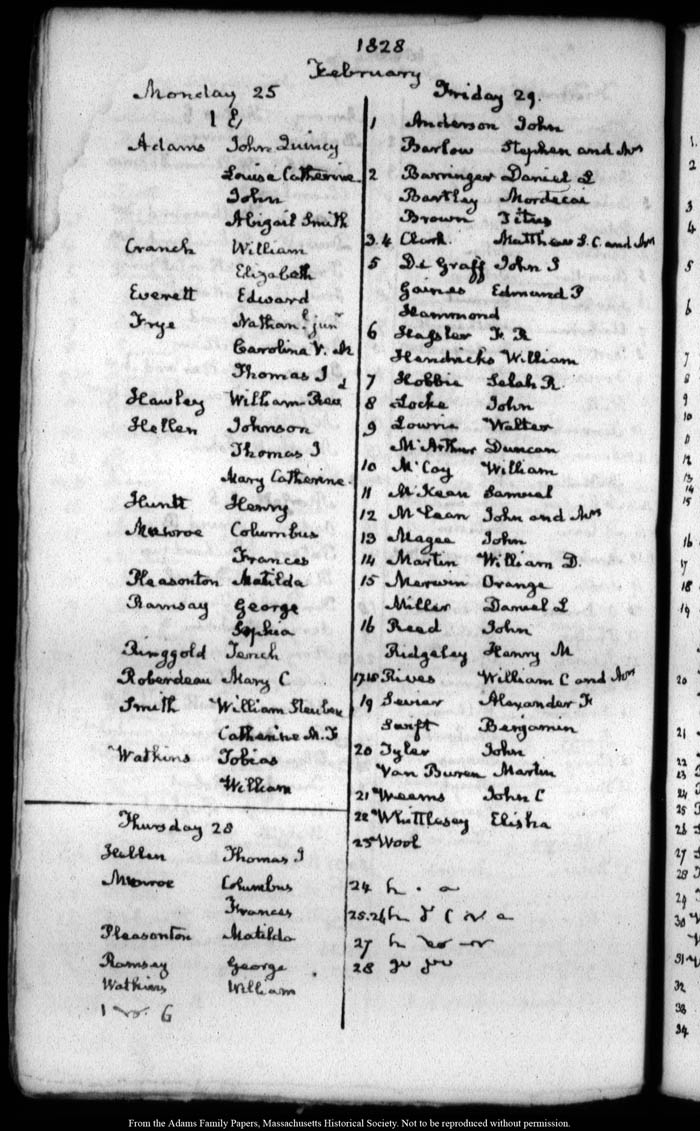 1828
February
Monday 25
1 E
Adams John Quincy
Louisa Catherine
John
Abigail Smith
Cranch William
Elizabeth
Everett Edward
Frye Nathanl junr
Carolina V. M
Thomas J
Hawley William Revd
Hellen Johnson
Thomas J
Mary Catherine
Huntt Henry
Munroe Columbus
Frances
Pleasonton Matilda
Ramsay George
Sophia
Ringgold Tench
Roberdeau Mary C
Smith William Steuben
Catherine M. F
Watkins Tobias
William
Thursday 28
Hellen Thomas J
Munroe Columbus
Frances
Pleasonton Matilda
Ramsay George
Watkins William
1 6
Friday 29.
1 Anderson John
Barlow Stephen and Mrs
2 Barringer Daniel L
Bartley Mordecai
Brown Titus
3.4 Clark. Matthew S. C. and Mrs
5 De Graff John I
Gaines Edmund P
Hammond
6 Hassler F. R
Hendricks William
7 Hobbie Selah R.
8 Locke John
9 Lowrie Walter
McArthur Duncan
10 McCoy William
11 McKean Samuel
12 McLean John and Mrs
13 Magee John
14 Martin William D.
15 Merwin Orange
Miller Daniel L
16 Reed John
Ridgeley Henry M
17.18 Rives William C and Mrs
19 Sevier Alexander F
Swift Benjamin
20 Tyler John
Van Buren Martin
21 Weems John C
22 Whittlesey Elisha
23 Wool
24
25.26
27
28
1.
2
3
4
5
6
7
8
9
10
11
12
13
14
15
16
17
18
19
20
21
22
23
24
25
26
27
28
29
30
31
32
33
34
From the Adams Family Papers, Massachusetts Historical Society. Not to be reproduced without permission.